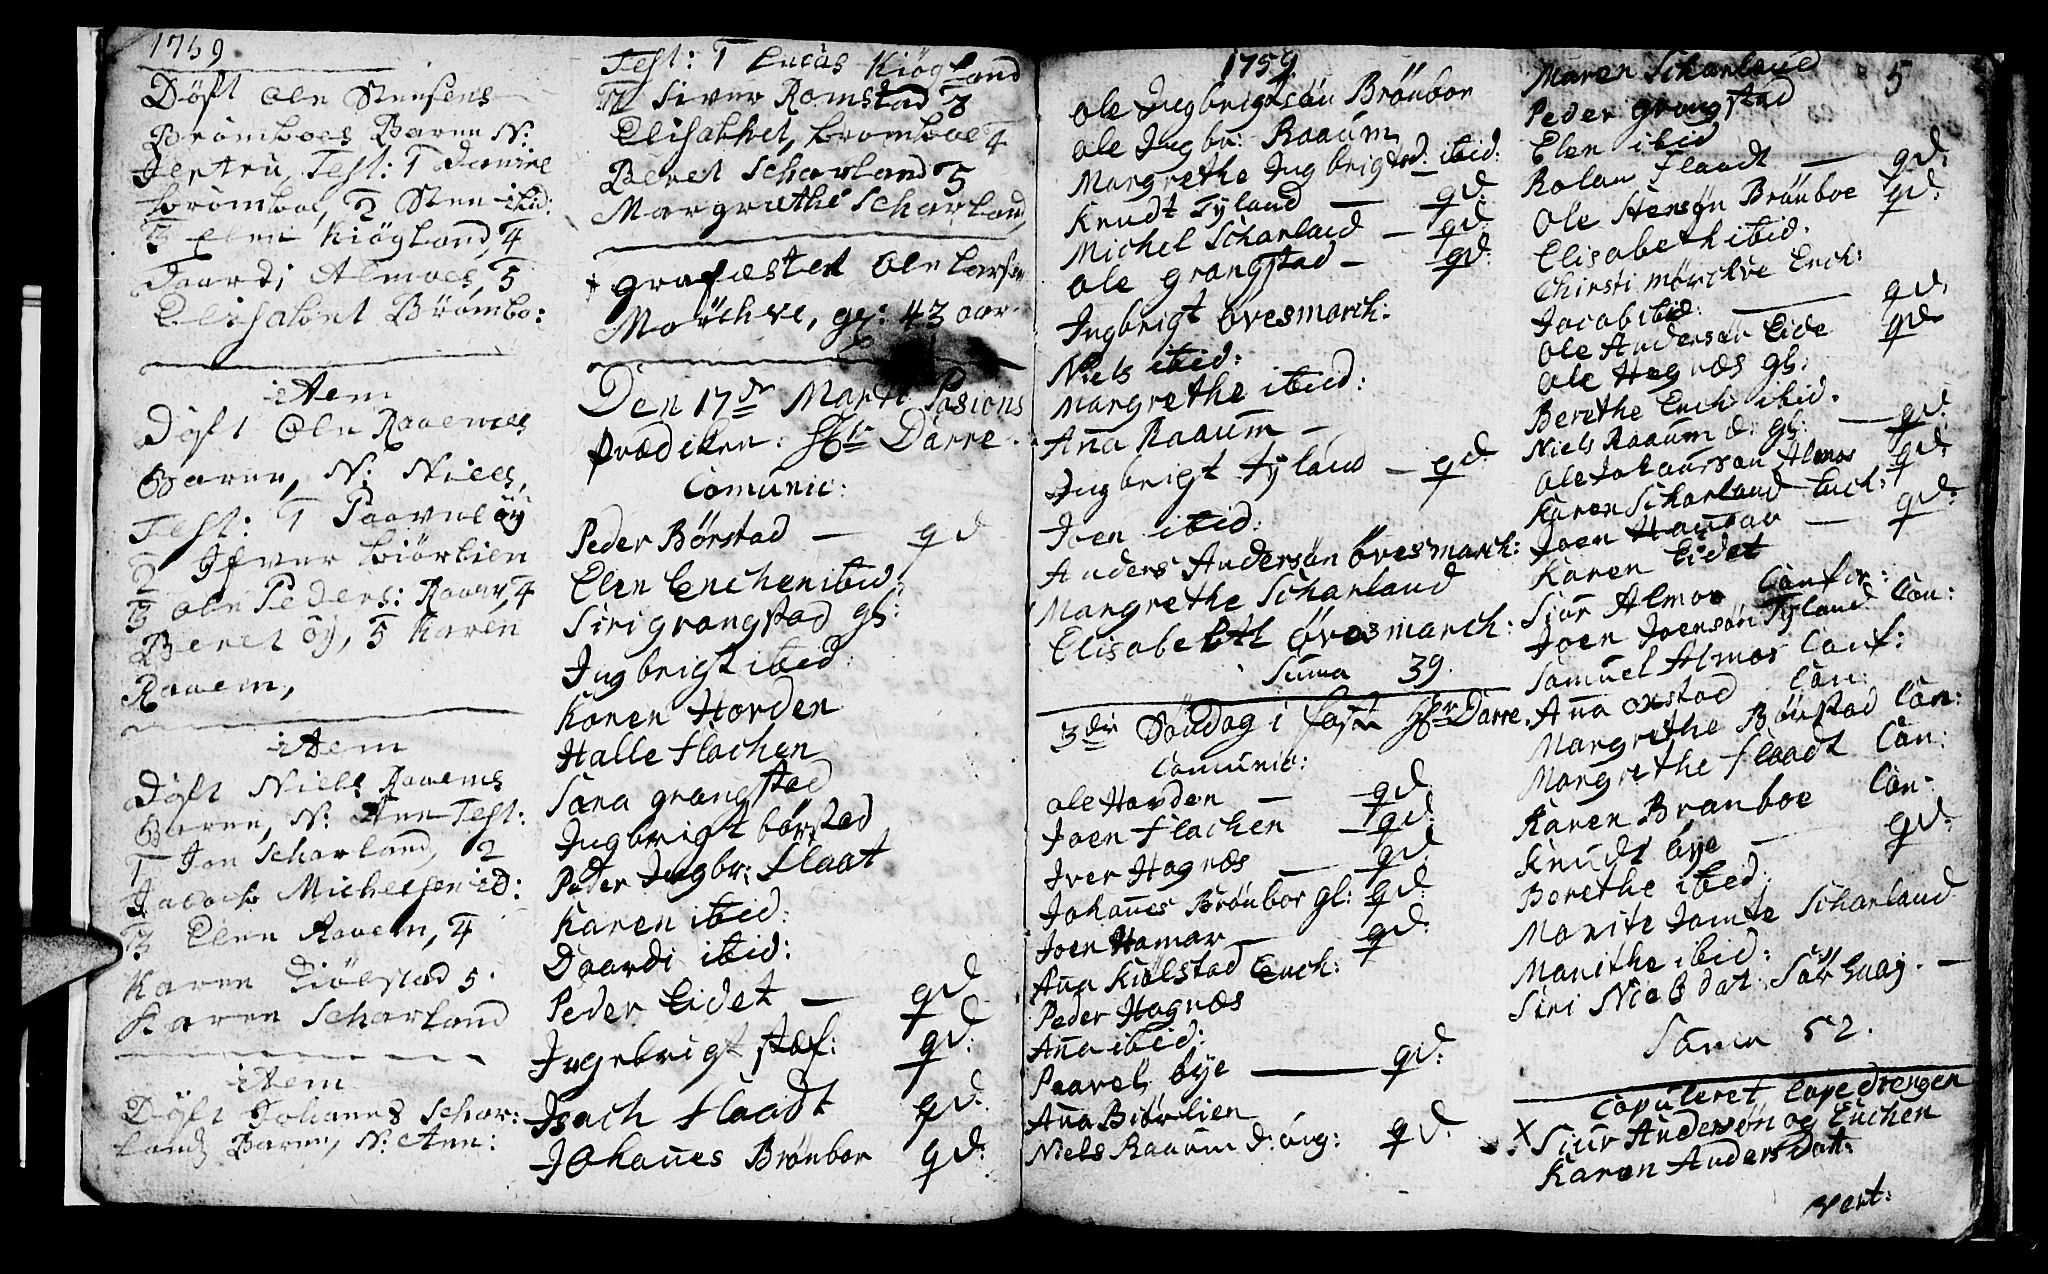 1759
Døft Ole Stensens
Brømboes Barn N:
Jertru, Test: 1 Daniel
brømboe, 2 Sten ibid:
3 Elen Kiøgland, 4
Daardi Almoes, 5
Elisabet Brømbo:
item
Døft Ole Raaemes
Baren, N: Niels,
Test: 1 Paavel øy
2 Ifver biørlien
3 Ole Peders: Raaem, 4
Beret øy, 5 Karen
Raaem,
item
Døft Niels Raaems
Baren, N: Ane Test:
1 Jon Scharland, 2
Jacob Michelsen id:
3 Elen Raaem, 4
Karen Kiølstad 5.
Karen Scharland
item
Døft Johanes Schar:
lands Baren, N: Ane:
Test: 1 Lucas Kiøgland
2 Siver Romstad 3
Elisabhet, bromboe 4
Beret Scharland 5
Margrethe Scharland
grafæstet Ole Larsen
Mørchve, gl: 43 aar
Den 17de Marti Pasions
prædiken: Hr Darre.
Comunic:
Peder Børstad — qd
Elen Enchen ibid:
Siri grongstad gl:
Ingbrigt ibid:
Karen Horden
Halle Flachen
Sara grongstad
Ingbrigt børstad
Peder Ingbr: Flaat
Karen ibid:
Daardi ibid:
Peder Eidet — qd
Ingebrigt stæf: qd:
Isach Flaadt qd.
Johanes Brønboe qd:
1759
Ole Ingbrigtsøn Brønboe
Ole Ingbr: Raaum
Margrethe Ingbrigtsd: ibid:
Knudt Tyland — qd:
Michel Scharland — qd:
Ole grongstad — qd:
Ingbrigt Øvesmarch:
Niels ibid:
Margrethe ibid:
Ana Raaum —
Ingbrigt Tyland — qd:
Joen ibid:
Anders Andersøn Øvesmarch:
Margrethe Scharland
Elisabeth Øvesmarch:
Suma 39.
3die Søndag i faste Hr Darre.
Comunic:
Ole Horden — qd:
Joen Flachen — qd:
Iver Hagnæs — qd:
Johanes Brønboe gl: qd:
Joen Hamar — qd:
Ana Kiølstad Ench:
Peder Hagnæs
Ana ibid:
Paavel bye — qd:
Ana Biørlien
Niels Raaum d: ung: qd:
Maren Scharland 5
Peder grongstad
Elen ibid
Rolan Flaadt — qd:
Ole Stensøn Brønboe qd:
Elisabeth ibid.
Chirsti Mørchve Ench:
Jacob ibid: — qd.
Ole Andersøn Eide qd
Ole Hagnæs gl:
Berethe Ench: ibid.
Niels Raaum d: gl: — qd:
Ole Johansøn Almos qd:
Karen Scharland Ench:
Joen Hansøn — qd:
Karen Eidet
Siur Almos Confir:
Joen Joensøn Tyland Con:
Samuel Almos Conf:
Ana Oxstad Con:
Margrethe Børstad Con:
Margrethe Flaadt Con:
Karen Brønboe Con:
Knudt bye — qd:
Berethe ibid:
Marite Jamte Scharland
Marithe ibid:
Siri Nielsdat: —
Suma 52.
Copuleret, Løse drengen
X Siur Andersøn og Enchen
Karen Andersdat:
vert: